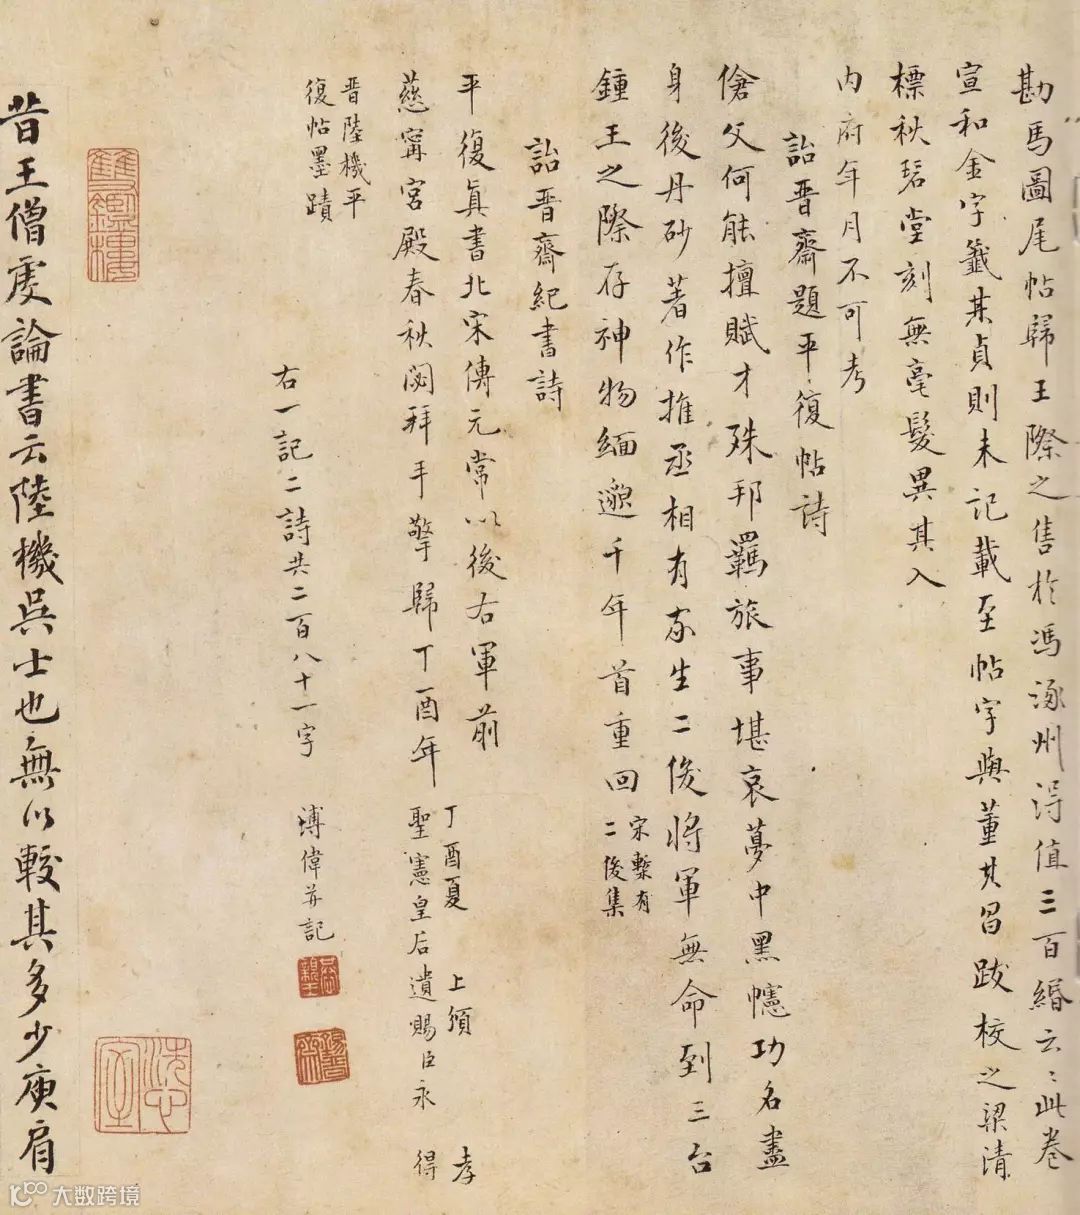 勘馬圖尾帖歸王際之售於馮涿州得值三百緡云〻此卷
宣和金字籤其貞則未記載至帖字與董其昌跋校之梁清
標秋碧堂刻無毫髮異其入
內府年月不可考
詒晉齋題平復帖詩
傖父何能擅賦才殊邦羈旅事堪哀夢中黑幰功名盡
身後丹砂著作推丞相有家生二俊將軍無命到三台
鍾王之際存神物緬邈千年首重回
宋槧有
二俊集
詒晉齋紀書詩
平復真書北宋傳元常以後右軍前
慈甯宮殿春秋閟拜手擎歸丁酉年
丁酉夏 上頒 孝
聖憲皇后遺賜臣永 得
晉陸機平
復帖墨蹟
右一記二詩共二百八十一字 溥偉並記
昔王僧虔論書云陸機吳士也無以較其多少庾肩
大数跨境